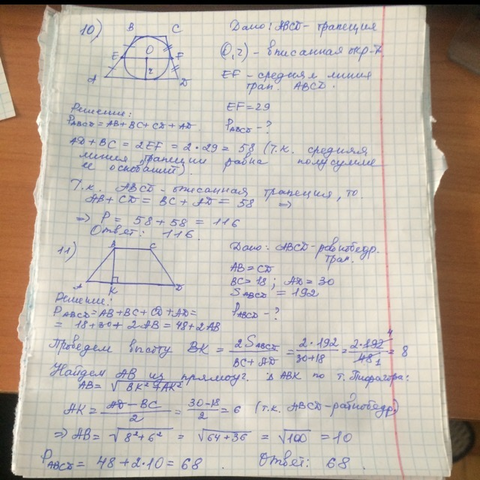 10)
B C
O
E F
r
A D
Дано: ABCD - трапеция
(O, r) - вписанная окр-ть
EF - средняя линия
трап. ABCD.
EF = 29
P_ABCD - ?
Решение:
P_ABCD = AB + BC + CD + AD
AD + BC = 2EF = 2·29 = 58 (т.к. средняя
линия трапеции равна полусумме
ее оснований).
Т.к. ABCD - описанная трапеция, то
AB + CD = BC + AD = 58 ⇒
⇒ P = 58 + 58 = 116
Ответ: 116.
11)
C
A K D
Дано: ABCD - равнобедр.
трап.
AB = CD
BC = 18; AD = 30
S_ABCD = 192
P_ABCD - ?
Решение:
P_ABCD = AB + BC + CD + AD =
= 18 + 30 + 2AB = 48 + 2AB
Проведем высоту BK = 2S_ABCD / (BC + AD) = 2·192 / (30+18) = 2·192 4 / 48 1 = 8
Найдем AB из прямоуг. Δ ABK по т. Пифагора:
AB = √(BK² + AK²)
AK = (AD - BC) / 2 = (30-18) / 2 = 6 (т.к. ABCD - равнобедр)
⇒ AB = √(8² + 6²) = √(64 + 36) = √100 = 10
P_ABCD = 48 + 2·10 = 68. Ответ: 68.